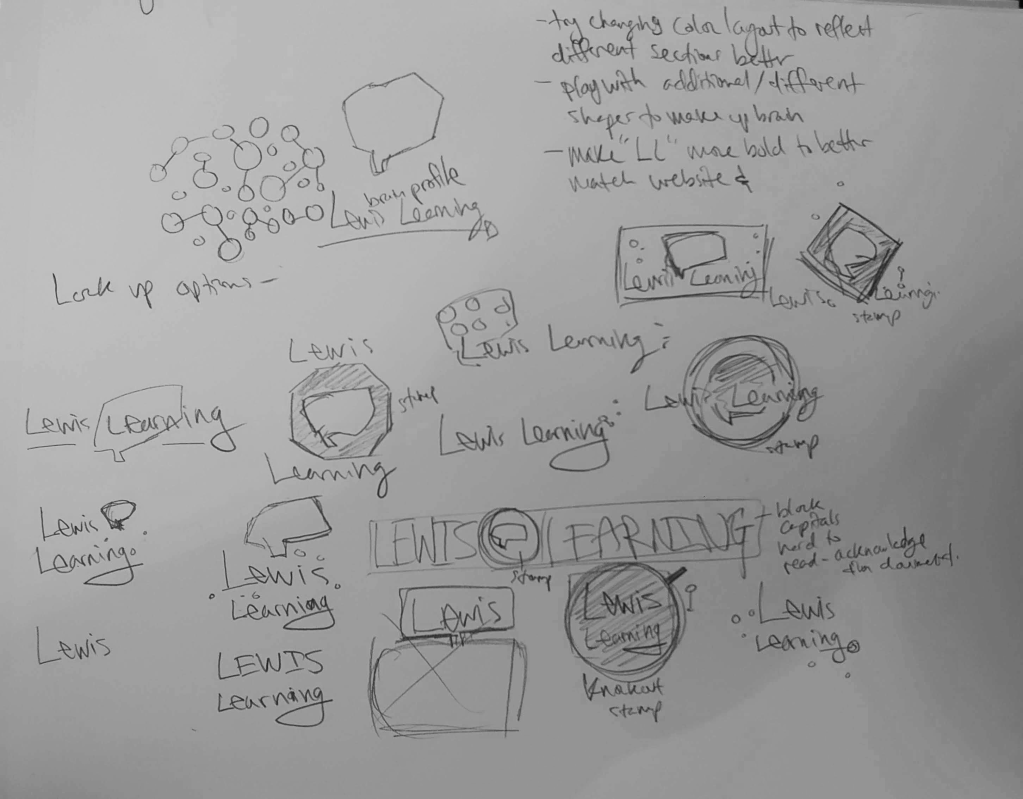 - try changing color layout to reflect
different sections better
- play with additional/different
shapes to make up brain
- make "LL" more bold to better
match website &
brain profile
Lewis Learning
Lock up options -
Lewis Learning
Lewis Learning
stamp
Lewis Learning
Lewis
stamp
Learning
Lewis Learning
Lewis Learning
Lewis Learning
stamp
Lewis
Learning
Lewis
Learning
LEWIS LEARNING
stamp
- block
capitals
hard to
read - acknowledge
Lewis
Lewis
Learning
Knockout
stamp
Lewis
Learning
Lewis
LEWIS
Learning